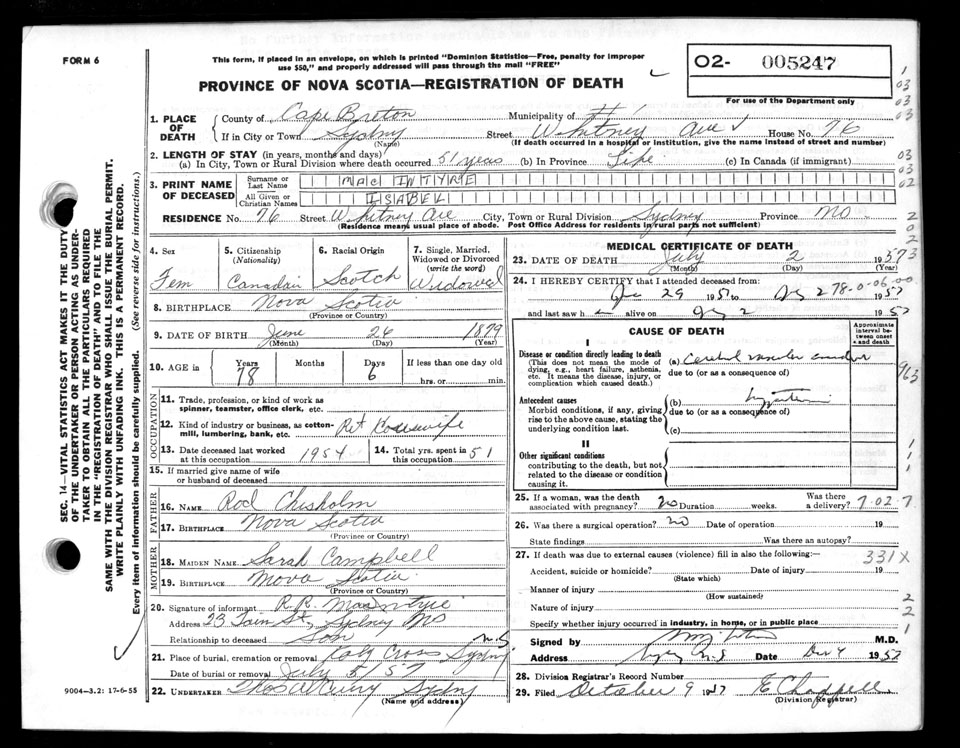 FORM 6
This form, if placed in an envelope, on which is printed "Dominion Statistics—Free, penalty for improper
use $50," and properly addressed will pass through the mail "FREE"
PROVINCE OF NOVA SCOTIA—REGISTRATION OF DEATH
O2- 005247
For use of the Department only
SEC. 14—VITAL STATISTICS ACT MAKES IT THE DUTY
OF THE UNDERTAKER OR PERSON ACTING AS UNDER-
TAKER TO OBTAIN ALL THE PARTICULARS REQUIRED
IN THE "REGISTRATION OF DEATH" AND TO FILE THE
SAME WITH THE DIVISION REGISTRAR WHO SHALL ISSUE THE BURIAL PERMIT.
WRITE PLAINLY WITH UNFADING INK. THIS IS A PERMANENT RECORD.
Every item of information should be carefully supplied. (See reverse side for instructions.)
1. PLACE OF DEATH
County of Cape Breton Municipality of
If in City or Town Sydney Street Whitney Ave House No. 76
(Name) (If death occurred in a hospital or institution, give the name instead of street and number)
2. LENGTH OF STAY (in years, months and days)
(a) In City, Town or Rural Division where death occurred 51 years (b) In Province Life (c) In Canada (if immigrant)
3. PRINT NAME OF DECEASED
Surname or Last Name MAC INTYRE
All Given or Christian Names ISABEL
RESIDENCE No. 76 Street Whitney Ave City, Town or Rural Division Sydney Province NS
(Residence means usual place of abode. Post Office Address for residents in rural parts not sufficient)
4. Sex Fem
5. Citizenship (Nationality) Canadian
6. Racial Origin Scotch
7. Single, Married, Widowed or Divorced (write the word) Widowed
8. BIRTHPLACE Nova Scotia
(Province or Country)
9. DATE OF BIRTH June 26 1879
(Month) (Day) (Year)
10. AGE in Years 78 Months Days 6 If less than one day old
hrs. or min.
OCCUPATION
11. Trade, profession, or kind of work as
spinner, teamster, office clerk, etc.
12. Kind of industry or business, as cotton-
mill, lumbering, bank, etc. Ret Housewife
13. Date deceased last worked
at this occupation 1954
14. Total yrs. spent in
this occupation 51
15. If married give name of wife
or husband of deceased
FATHER
16. NAME Rod Chisholm
17. BIRTHPLACE Nova Scotia
(Province or Country)
MOTHER
18. MAIDEN NAME Sarah Campbell
19. BIRTHPLACE Nova Scotia
(Province or Country)
20. Signature of informant R.R. MacIntyre
Address 23 St, Sydney NS
Relationship to deceased Son N.S
21. Place of burial, cremation or removal Holy Cross Sydney
Date of burial or removal July 5 57
22. UNDERTAKER Sydney
(Name and address)
9004—3.2: 17-6-55
MEDICAL CERTIFICATE OF DEATH
23. DATE OF DEATH July 2 1957
(Month) (Day) (Year)
24. I HEREBY CERTIFY that I attended deceased from:
29 1957 to 2 1957
78-0-06-00
and last saw h alive on 2 1957
CAUSE OF DEATH
Approximate interval between onset and death
I
Disease or condition directly leading to death (a) Cerebral vascular accident
(This does not mean the mode of dying, e.g., heart failure, asthenia, etc. It means the disease, injury, or complication which caused death.)
due to (or as a consequence of)
Antecedent causes (b) Hypertension
Morbid conditions, if any, giving rise to the above cause, stating the underlying condition last.
due to (or as a consequence of)
(c)
II
Other significant conditions
contributing to the death, but not related to the disease or condition causing it.
25. If a woman, was the death
associated with pregnancy? no Duration weeks. Was there a delivery? 7-02-7
26. Was there a surgical operation? no Date of operation 19
State findings Was there an autopsy?
27. If death was due to external causes (violence) fill in also the following:— 331X
Accident, suicide or homicide? Date of injury 19
(State which)
Manner of injury
(How sustained)
Nature of injury
Specify whether injury occurred in industry, in home, or in public place
Signed by M.D.
Address Sydney N.S Date 1957
28. Division Registrar's Record Number
29. Filed October 9 1957 E Chappell
(Division Registrar)